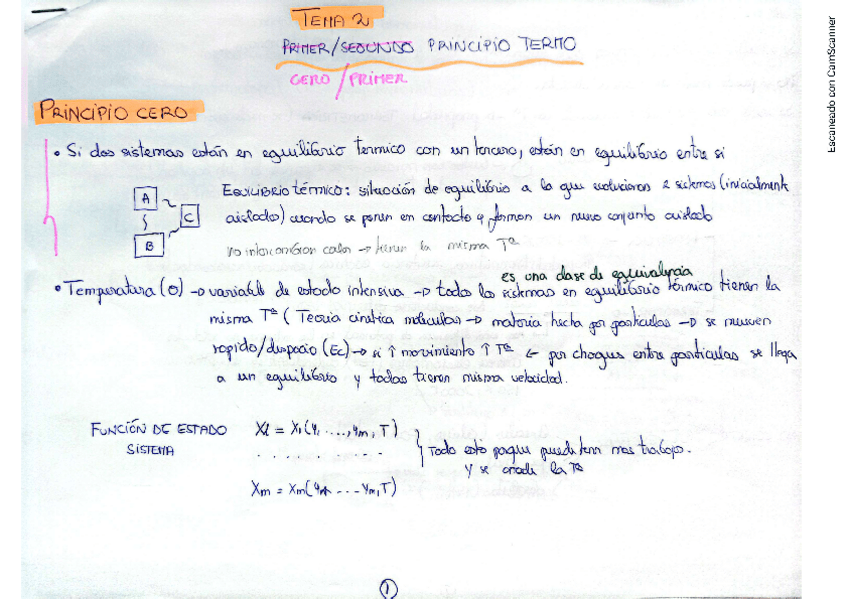 TEMA 2
PRIMER/SEGUNDO PRINCIPIO TERMO
CERO/PRIMER
PRINCIPIO CERO
• Si dos sistemas están en equilibrio térmico con un tercero, están en equilibrio entre si
A
C
B
EQUILIBRIO térmico: situación de equilibrio a la que evolucionan 2 sistemas (inicialmente
aislados) cuando se ponen en contacto y forman un nuevo conjunto aislado
no intercambian calor → tienen la misma Tª
es una clase de equivalencia
• Temperatura (θ) → variable de estado intensiva → todos los sistemas en equilibrio térmico tienen la
misma Tª (Teoría cinética molecular → materia hecha por partículas → se mueven
rapido/despacio (Ec) → si ↑ movimiento ↑ Tª ← por choques entre partículas se llega
a un equilibrio y todas tienen misma velocidad.
FUNCIÓN DE ESTADO
SISTEMA
X1 = X1(y1, ...., ym, T)
. . . . . . . . .
Xm = Xm(y1, ... ym, T)
Todo esto porque puede tener mas trabajo.
Y se añade la Tª
1
Escaneado con CamScanner